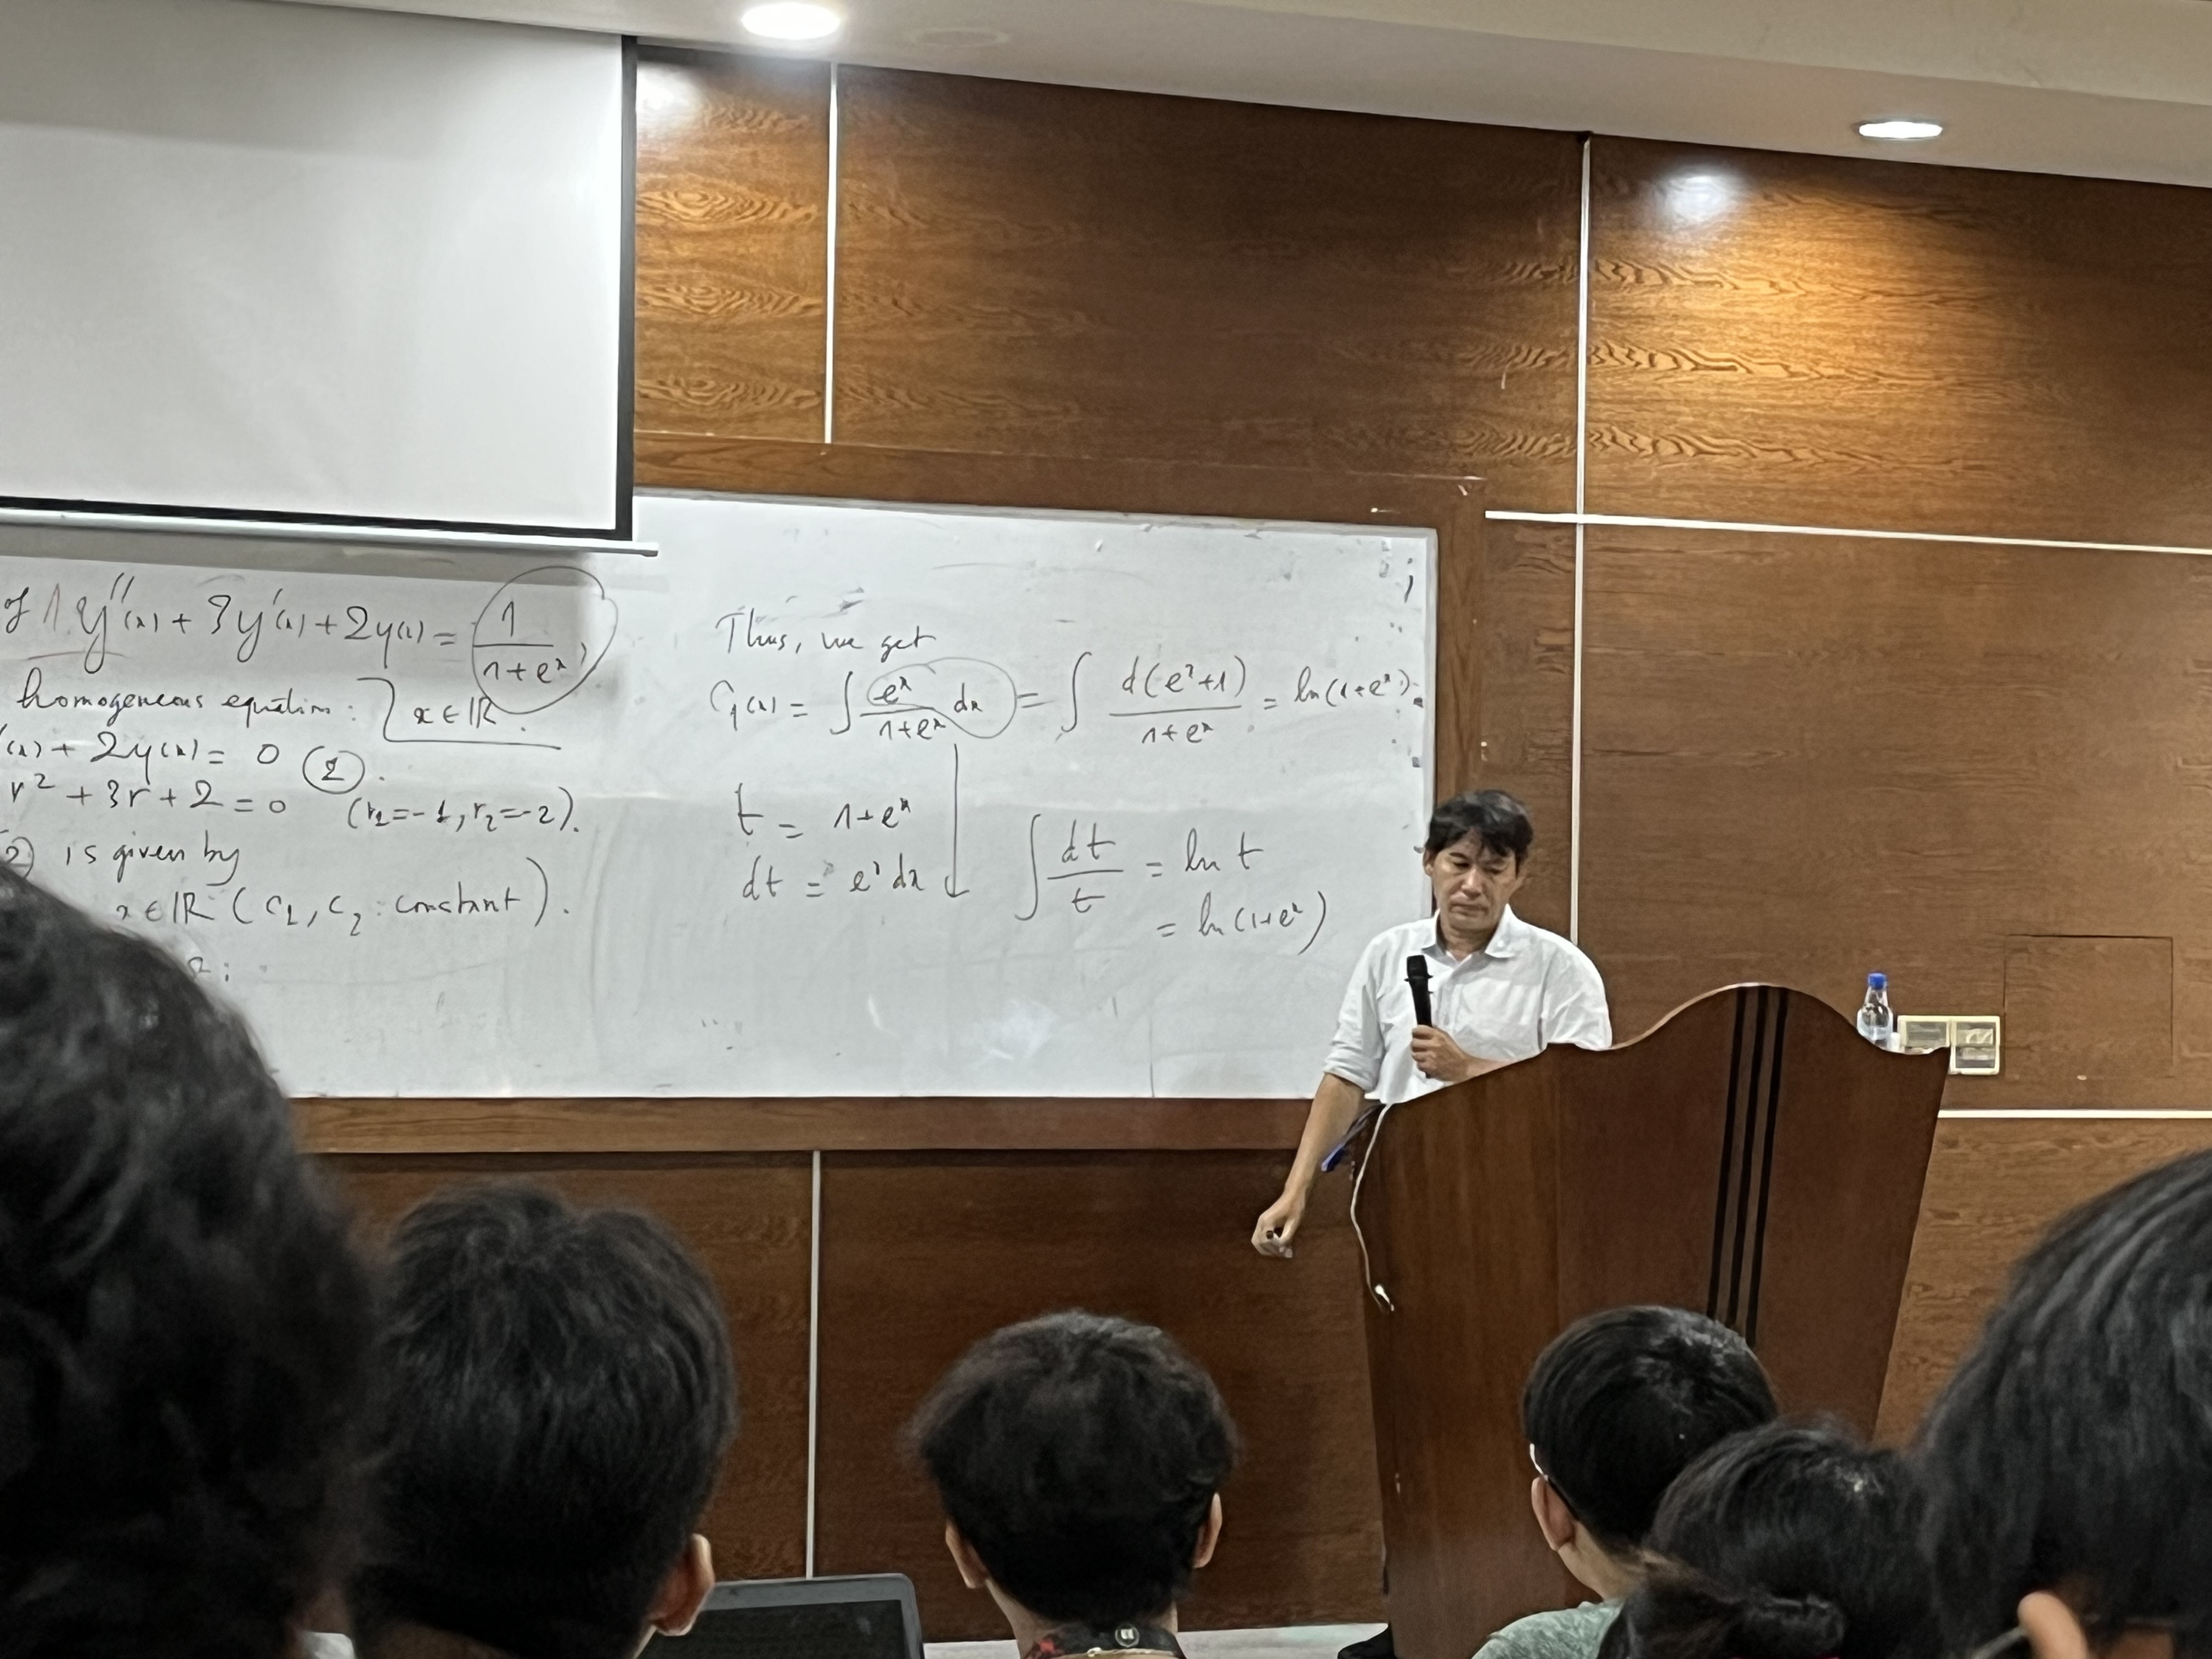 of 1 y''(x) + 3y'(x) + 2y(x) = 1/(1+eˣ),
homogeneous equation: x ∈ ℝ.
'(x) + 2y(x) = 0 (2).
r² + 3r + 2 = 0 (r₁ = -1, r₂ = -2).
(2) is given by
x ∈ ℝ (c₁, c₂ : constant).
Thus, we get
C₁(x) = ∫ eˣ/(1+eˣ) dx = ∫ d(eˣ+1)/(1+eˣ) = ln(1+eˣ).
t = 1+eˣ
dt = eˣ dx
∫ dt/t = ln t
= ln(1+eˣ)